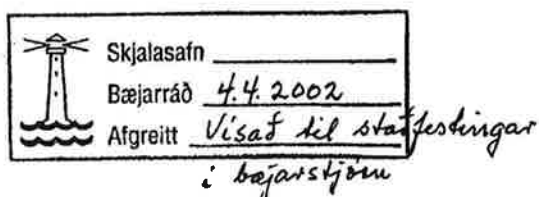 Skjalasafn
Bæjarráð 4.4.2002
Afgreitt Vísað til staðfestingar
í bæjarstjórn